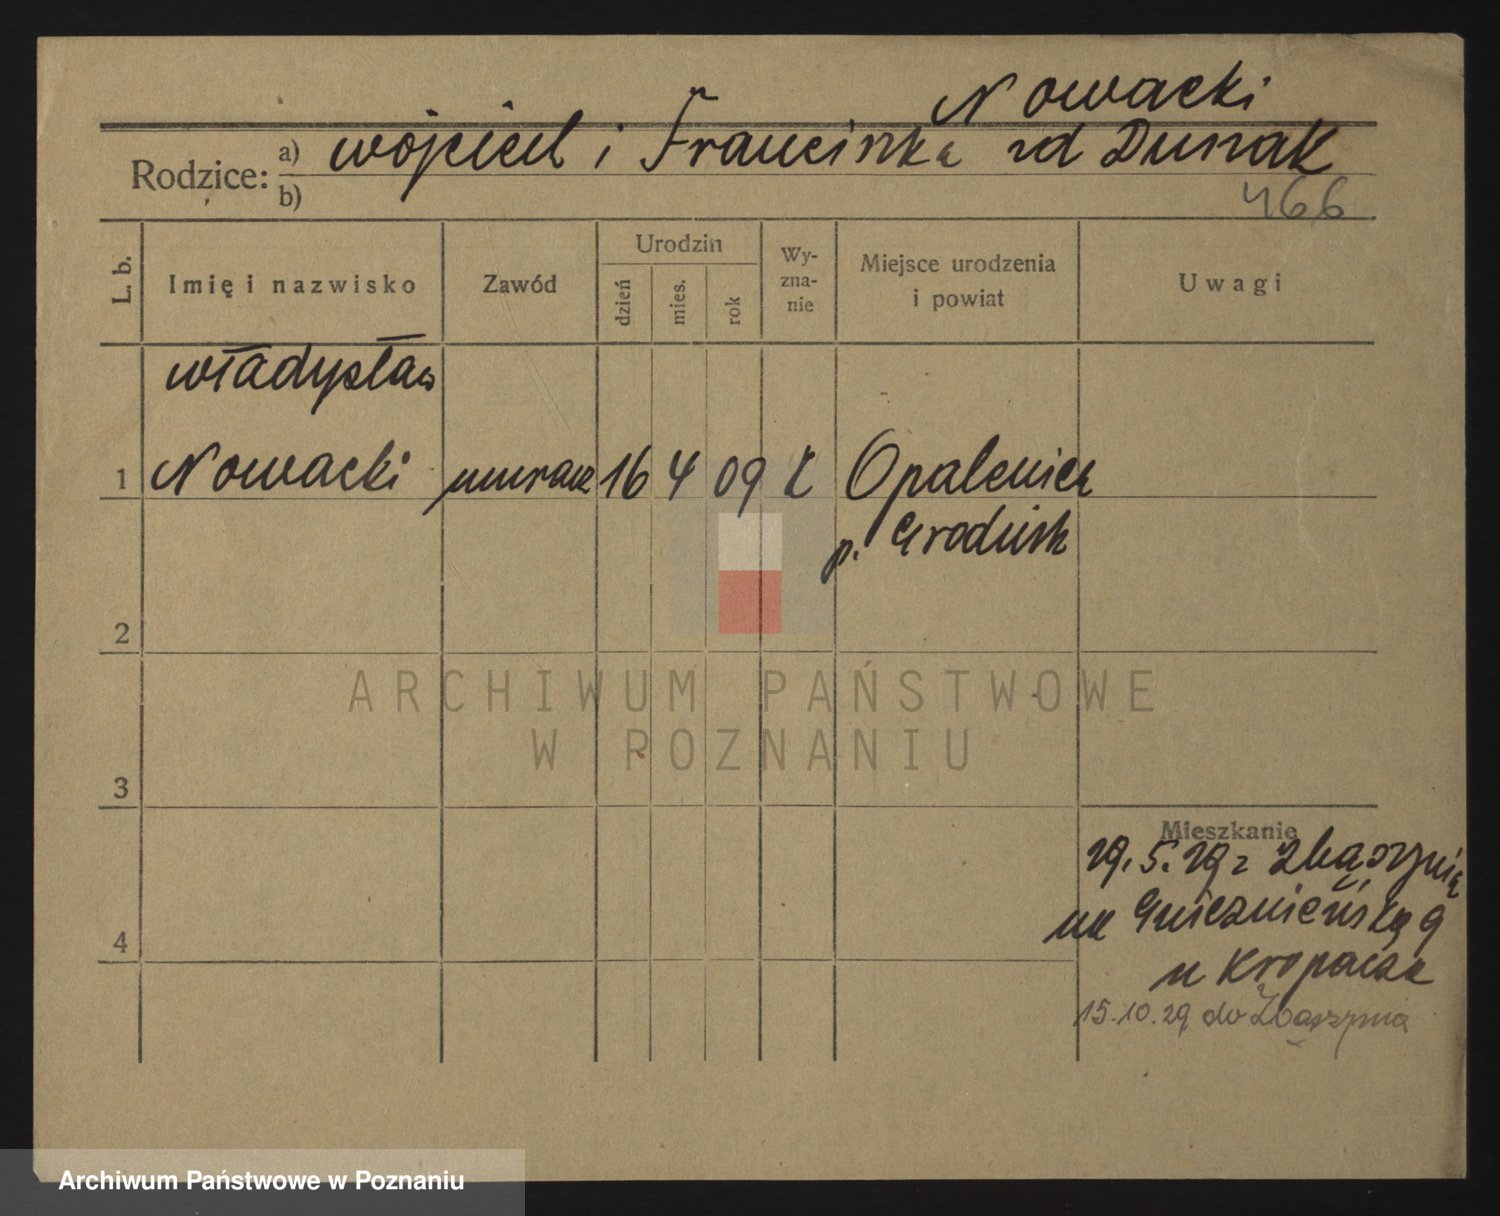 Nowacki
Rodzice: a) Wojciech i Franciszka zd Dusza k
b)
466
L. b.
Imię i nazwisko
Zawód
Urodzin
dzień
mies.
rok
Wy-
zna-
nie
Miejsce urodzenia
i powiat
Uwagi
Władysław
1 Nowacki murarz 16 4 09 k Opalenica
p. Grodzisk
2
ARCHIWUM PAŃSTWOWE
W POZNANIU
3
Mieszkanie
29.5.29 z Zbąszynia
na Gnieźnieńską 9
u Kropacza
4
15.10.29 do Zbąszynia
Archiwum Państwowe w Poznaniu